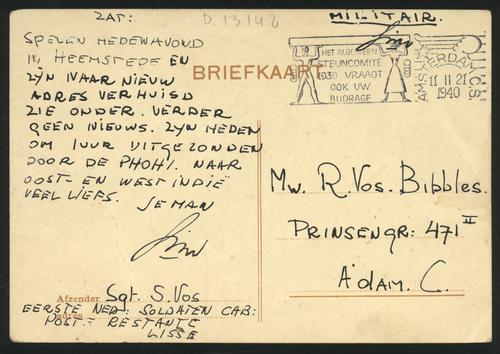 ZAT:
D. 13142
MILITAIR.
SPELEN HEDENAVOND
IN HEEMSTEDE EN
ZYN NAAR NIEUW
ADRES VERHUISD
ZIE ONDER. VERDER
GEEN NIEUWS. ZYN HEDEN
OM 1 UUR UITGEZONDEN
DOOR DE PHOHI. NAAR
OOST- EN WEST INDIË
VEEL LIEFS.
JE MAN
BRIEFKAART
HET ALGEMEEN
STEUNCOMITÉ
1939 VRAAGT
OOK UW
BIJDRAGE
AMSTERDAM
11 II 21
1940
Mw. R. Vos. Bibbles.
PRINSENGR: 471 II
A'DAM. C.
Afzender Sgt. S. Vos
EERSTE NED: SOLDATEN CAB:
adres POST- RESTANTE
LISSE